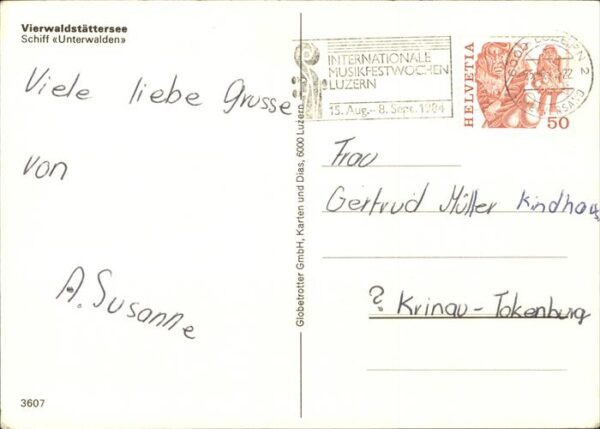 Vierwaldstättersee
Schiff «Unterwalden»
Viele liebe Grusse
von
A. Susanne
3607
Globetrotter GmbH, Karten und Dias, 6000 Luzern
INTERNATIONALE
MUSIKFESTWOCHEN
LUZERN
15. Aug.- 8. Sept. 1984
HELVETIA
50
6000 LUZERN 2
Frau
Gertrud Müller
? Krinau-Tokenburg